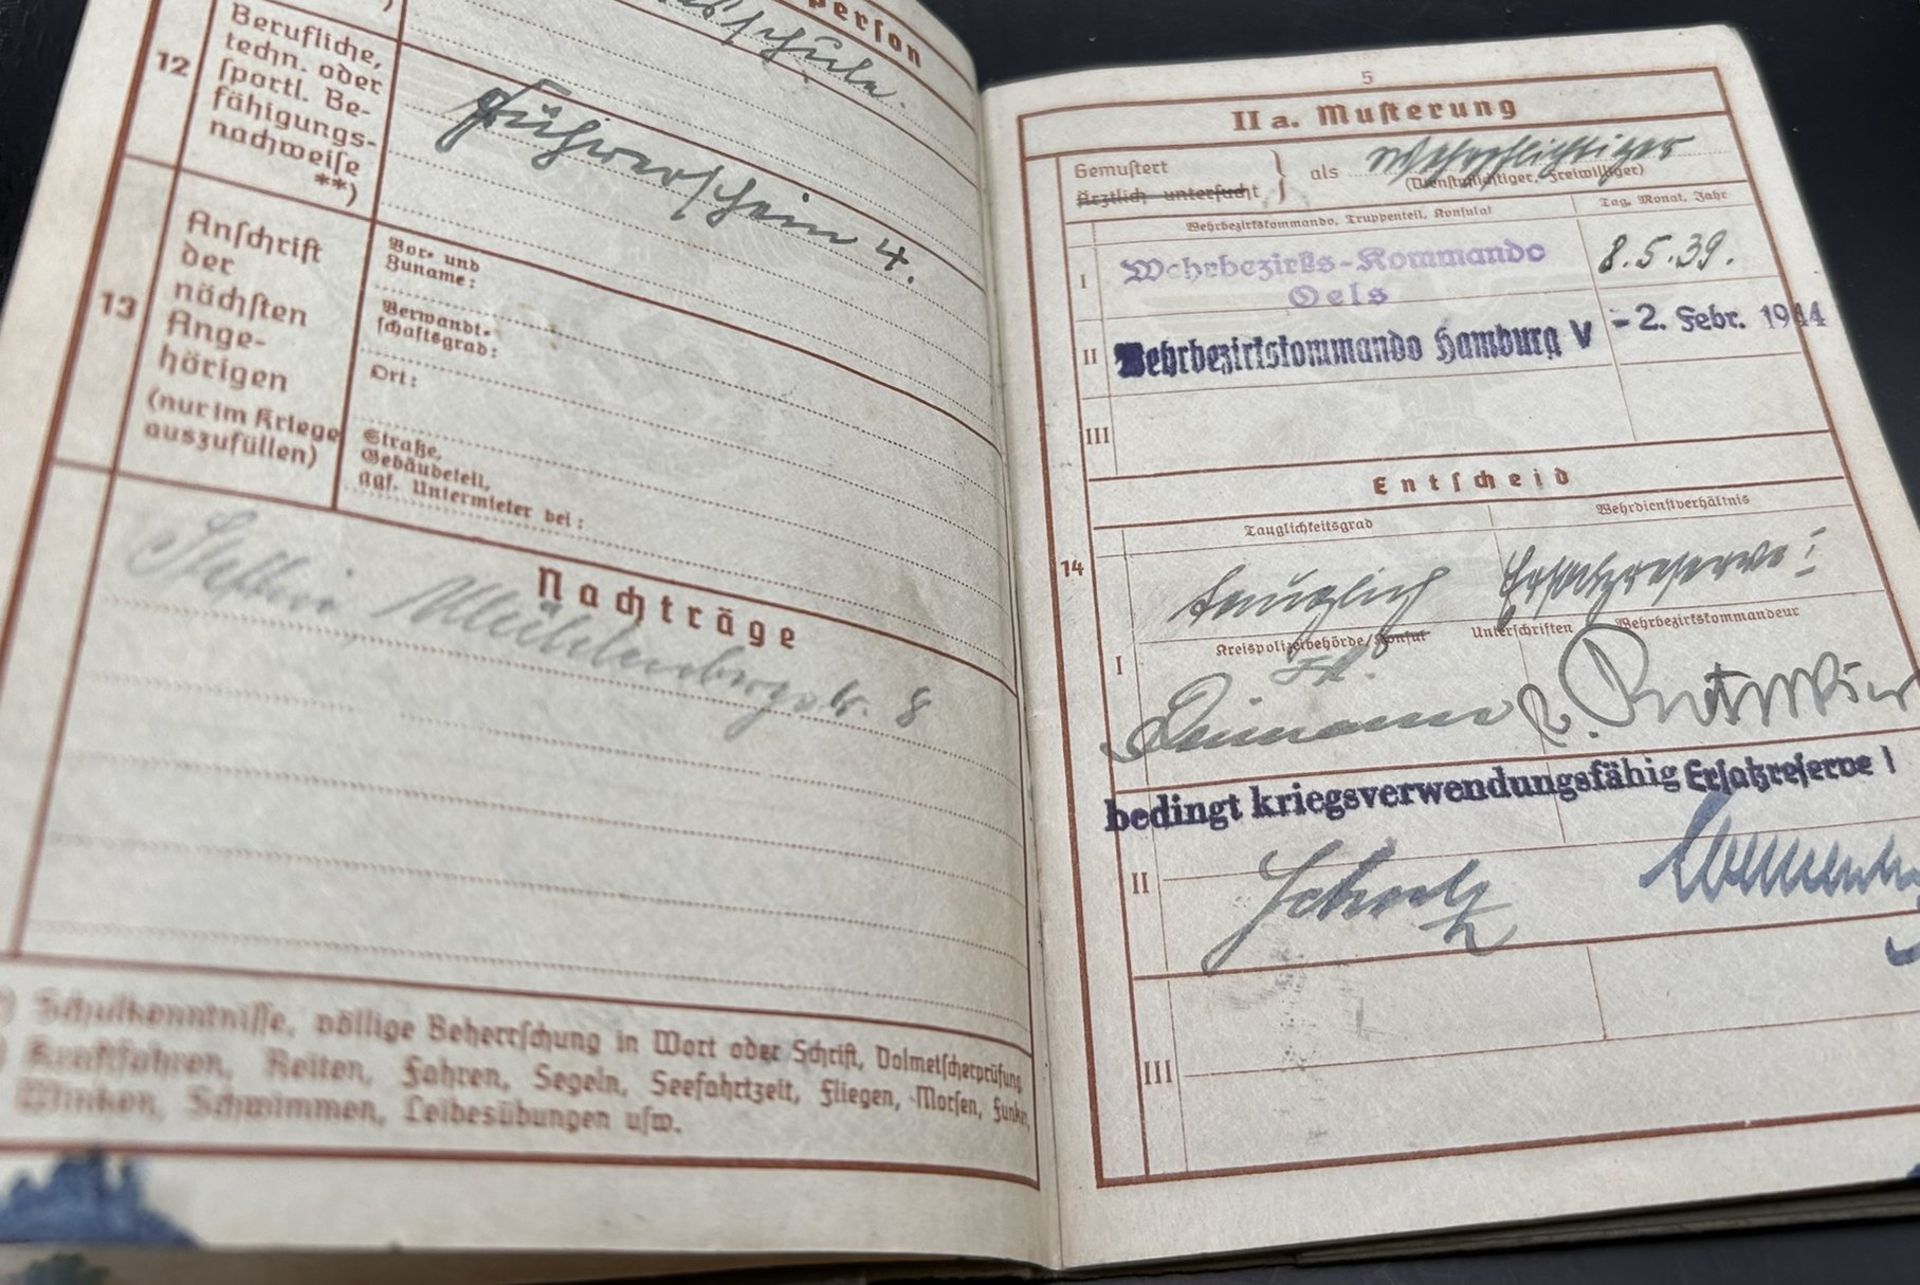 person
sschule.
12
Berufliche,
techn. oder
sportl. Be-
fähigungs-
nachweise
**)
Führerschein 4.
13
Anschrift
der
nächsten
Ange-
hörigen
(nur im Kriege
auszufüllen)
Vor- und
Zuname:
Verwandt-
schaftsgrad:
Ort:
Straße,
Gebäudeteil,
ggf. Untermieter bei:
Nachträge
Stettin, Mühlenbergstr. 8
*) Schulkenntnisse, völlige Beherrschung in Wort oder Schrift, Dolmetscherprüfung
Kraftfahren, Reiten, Fahren, Segeln, Seefahrtzeit, Fliegen, Morsen, Funken,
Winken, Schwimmen, Leibesübungen usw.
5
II a. Musterung
Gemustert
Ärztlich untersucht
} als Wehrpflichtiger
(Dienstpflichtiger, Freiwilliger)
Wehrbezirkskommando, Truppenteil, Konsulat
Tag, Monat, Jahr
I Wehrbezirks-Kommando
Oels
8.5.39.
II Wehrbezirkskommando Hamburg V
- 2. Febr. 1944
III
Entscheid
14
Tauglichkeitsgrad
Wehrdienstverhältnis
tauglich Ersatzreserve I
Kreispolizeibehörde/Konsul Unterschriften Wehrbezirkskommandeur
I
bedingt kriegsverwendungsfähig Ersatzreserve I
II
Scholz
III